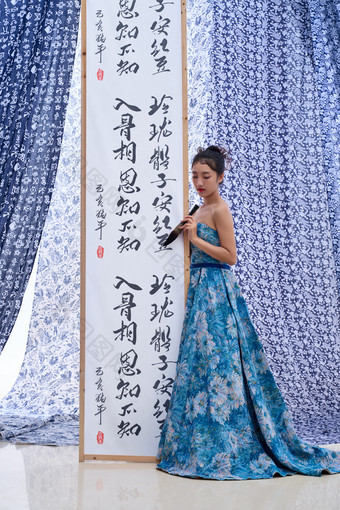 子安红豆
思知不知
己亥
玲珑骰子安红
入骨相思知不知
己亥
玲珑骰子安
入骨相思知不知
己亥